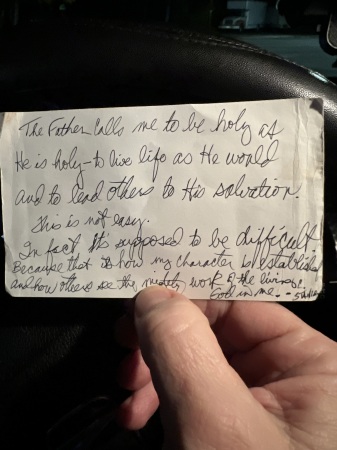 The Father calls me to be holy as
He is holy - to live life as He would
and to lead others to His salvation.
This is not easy.
In fact it's supposed to be difficult
Because that is how my character is established
and how others see the mighty work of the living
God in me. -